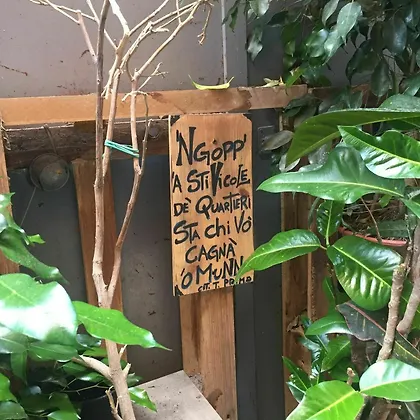 'NGOPP'
'A STI VICOLE
DÈ QUARTIERI
STA CHI VÒ
CAGNÀ
'O MUNN'